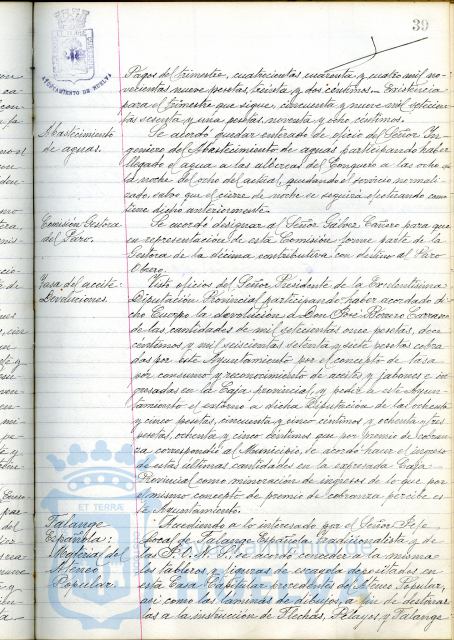 39
AYUNTAMIENTO DE HUELVA
Pagos del trimestre, cuatrocientas cuarenta y cuatro mil no-
vecientas nueve pesetas, treinta y dos céntimos.- Existencia
para el trimestre que sigue, cincuenta y nueve mil setecien-
tas setenta y una pesetas, noventa y ocho céntimos.
Abastecimiento
de aguas.
Se acordó quedar enterado de oficio del Señor In-
geniero del Abastecimiento de aguas participando haber
llegado el agua a las albercas del Conquero a las ocho de
la noche del ocho del actual, quedando el servicio normali-
zado, salvo que el cierre de noche se seguirá efectuando como
tiene dicho anteriormente.
Comisión Gestora
del Paro.
Se acordó designar al Señor Gálvez Cañero para que
en representación de esta Comisión forme parte de la
Gestora de la décima contributiva con destino al Paro
Obrero.
Tasa del aceite:
Devoluciones.
Visto oficios del Señor Presidente de la Excelentísima
Diputación Provincial participando haber acordado di-
cho Cuerpo la devolución a Don José Romero
de las cantidades de mil setecientas once pesetas, doce
céntimos y mil seiscientas setenta y siete pesetas cobra-
das por este Ayuntamiento por el concepto de tasa
por consumo y reconocimiento de aceites y jabones e in-
gresadas en la Caja provincial y pedir a este Ayun-
tamiento el retorno a dicha Diputación de las ochenta
y cinco pesetas, cincuenta y cinco céntimos y ochenta y tres
pesetas, ochenta y cinco céntimos que por premio de cobran-
za correspondió al Municipio, se acordó hacer el ingreso
de estas últimas cantidades en la expresada Caja
Provincial como minoración de ingresos de lo que por
el mismo concepto de premio de cobranza percibe es-
te Ayuntamiento.
Falange
Española:
Material del
Ateneo
Popular.
Accediendo a lo interesado por el Señor Jefe
local de Falange Española Tradicionalista y de
las J.O.N.S. se acordó conceder a la misma
los tableros y figuras de escayola depositados en
esta Casa Capitular procedentes del Ateneo Popular,
así como las láminas de dibujos, a fin de destinar-
las a la instrucción de Flechas, Pelayos y Falange
ET TERRÆ